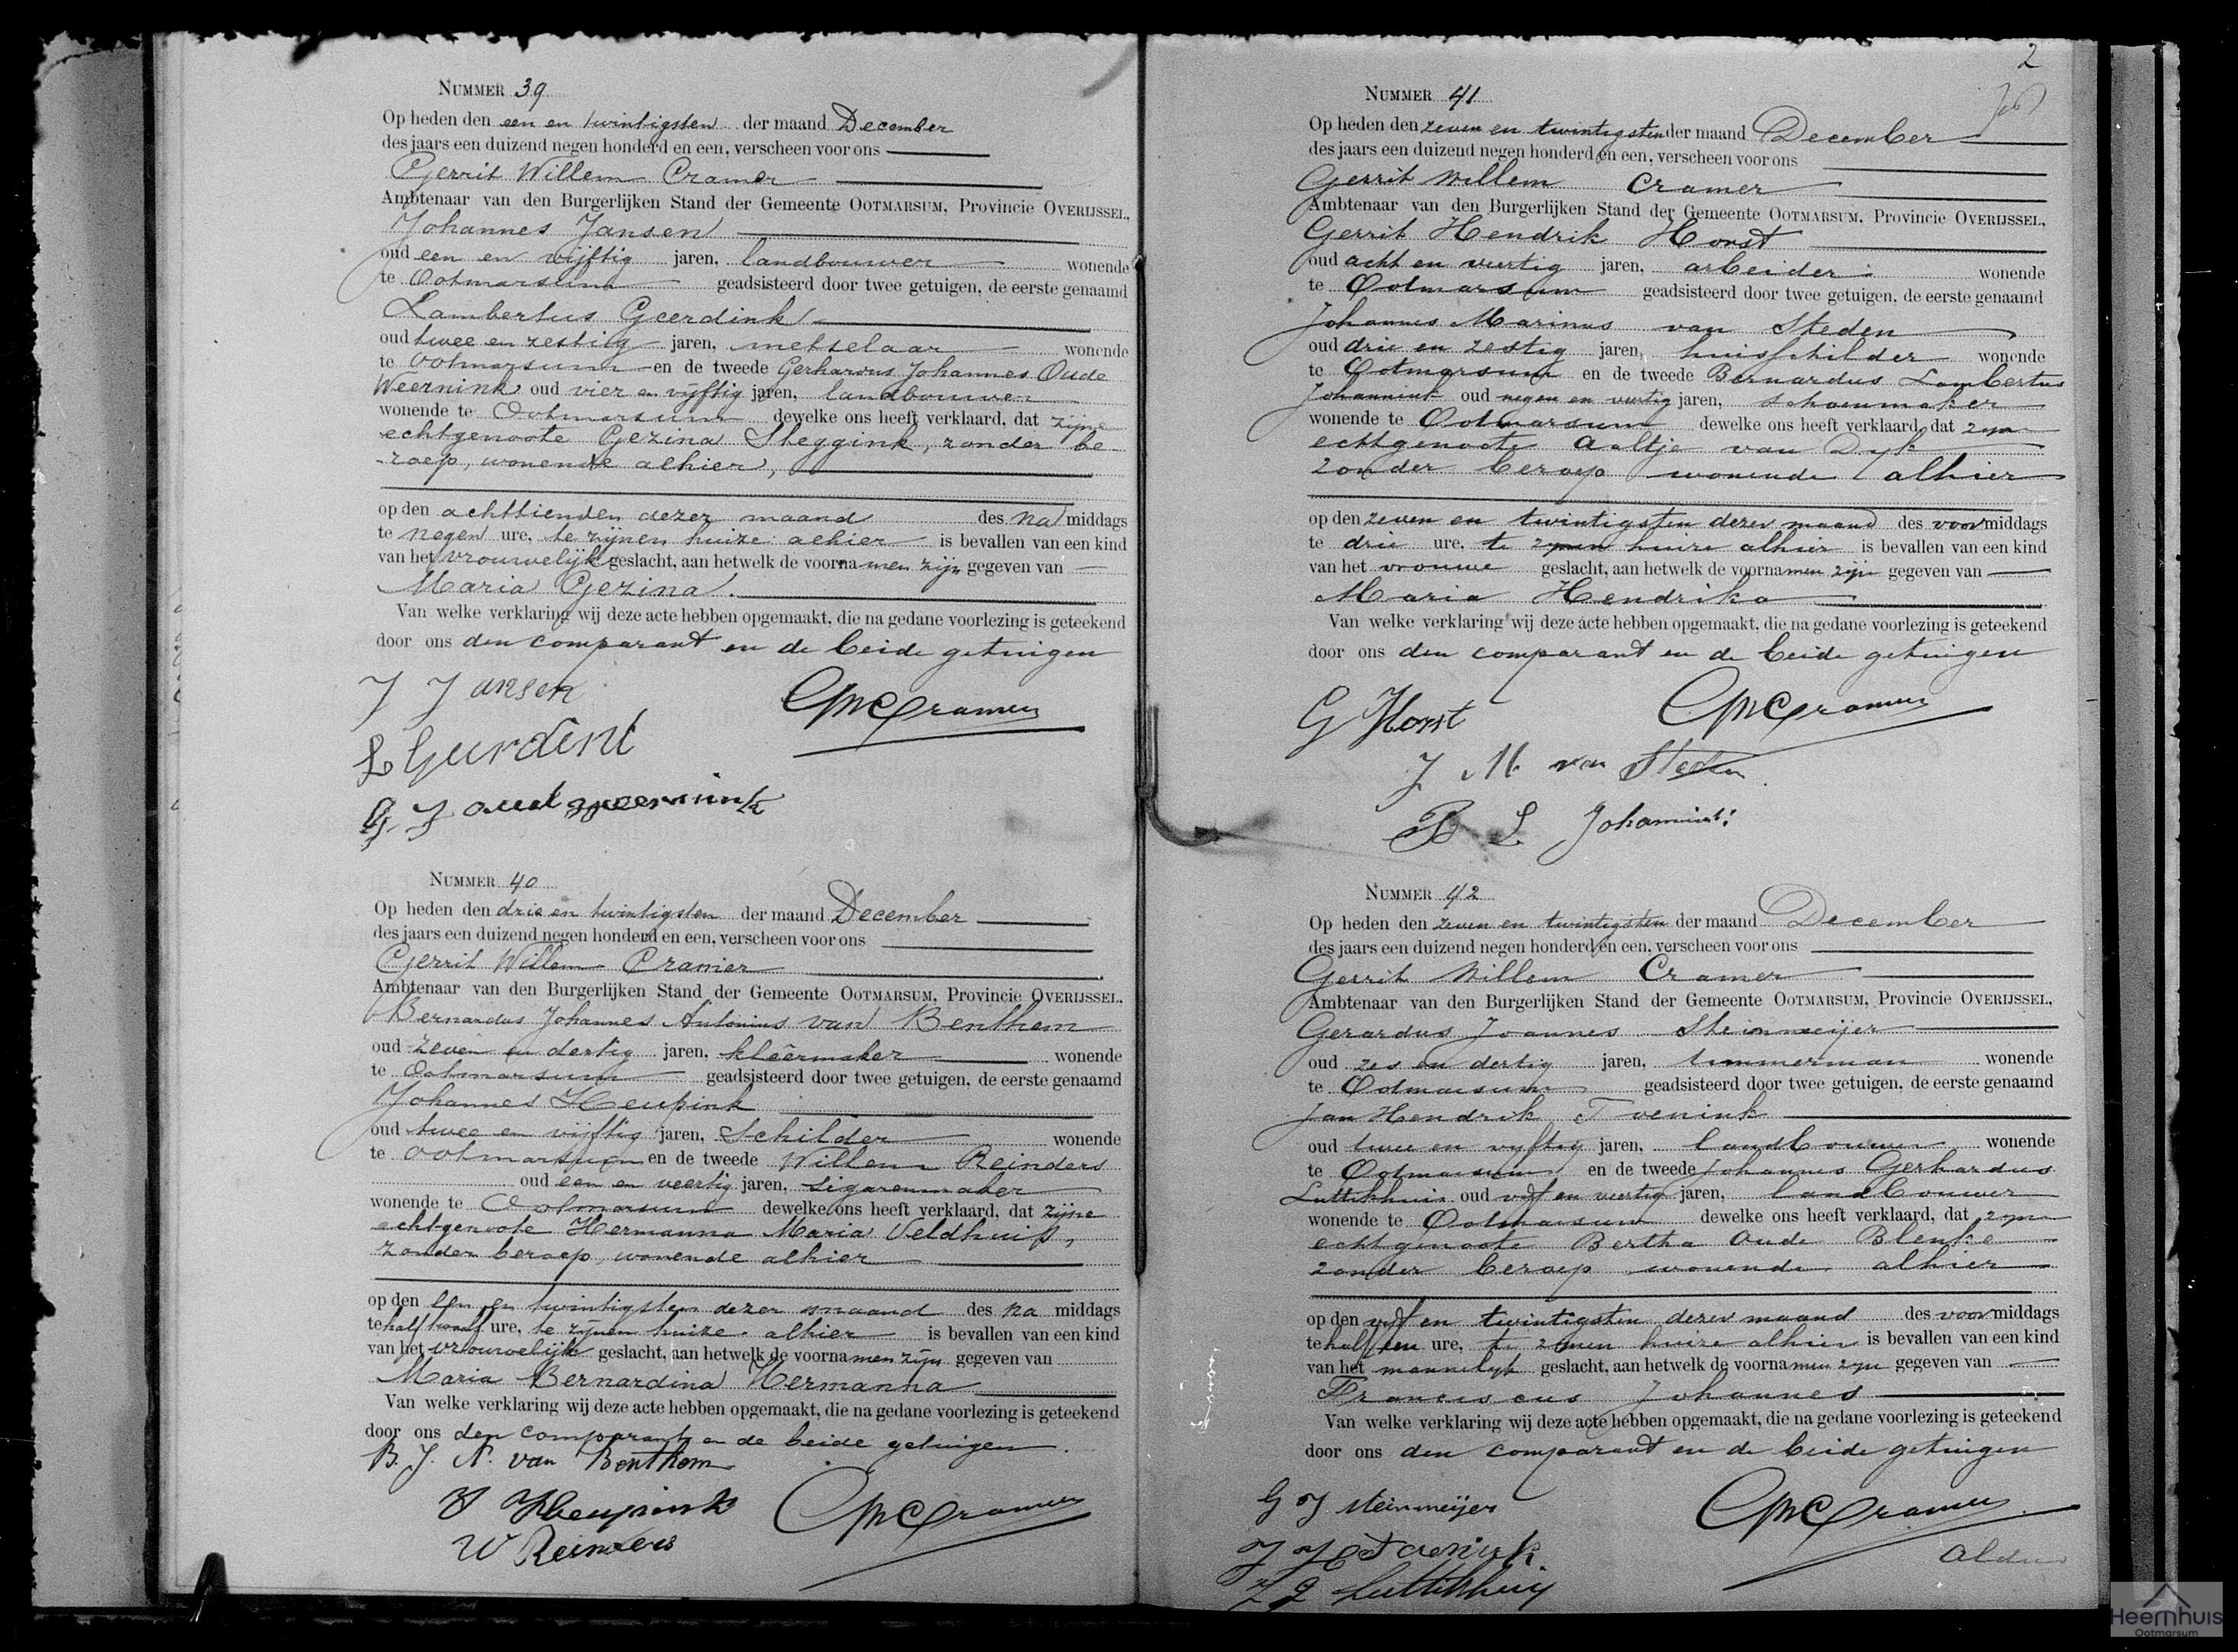 NUMMER 39
Op heden den een en twintigsten der maand December
des jaars een duizend negen honderd en een, verscheen voor ons
Gerrit Willem Cramer
Ambtenaar van den Burgerlijken Stand der Gemeente OOTMARSUM, Provincie OVERIJSSEL,
Johannes Jansen
oud een en vijftig jaren, landbouwer wonende
te Ootmarsum geadsisteerd door twee getuigen, de eerste genaamd
Lambertus Geerdink
oud twee en zestig jaren, metselaar wonende
te Ootmarsum en de tweede Gerhardus Johannes Oude
Weernink oud vier en vijftig jaren, landbouwer
wonende te Ootmarsum dewelke ons heeft verklaard, dat zijne
echtgenoote Gezina Steggink, zonder be-
-roep, wonende alhier,
op den achttienden dezer maand des na middags
te negen ure, te zijnen huize alhier is bevallen van een kind
van het vrouwelijk geslacht, aan hetwelk de voornamen zijn gegeven van
Maria Gezina.
Van welke verklaring wij deze acte hebben opgemaakt, die na gedane voorlezing is geteekend
door ons den comparant en de beide getuigen
J Jansen
GWCramer
L Geerdink
G J oude weernink
NUMMER 40
Op heden den drie en twintigsten der maand December
des jaars een duizend negen honderd en een, verscheen voor ons
Gerrit Willem Cramer
Ambtenaar van den Burgerlijken Stand der Gemeente OOTMARSUM, Provincie OVERIJSSEL,
Bernardus Johannes Antonius van Benthem
oud zeven en dertig jaren, kleêrmaker wonende
te Ootmarsum geadsisteerd door twee getuigen, de eerste genaamd
Johannes Heupink
oud twee en vijftig jaren, Schilder wonende
te Ootmarsum en de tweede Willem Reinders
oud een en veertig jaren, sigarenmaker
wonende te Ootmarsum dewelke ons heeft verklaard, dat zijne
echtgenoote Hermanna Maria Veldhuis,
zonder beroep, wonende alhier
op den een en twintigsten dezer maand des na middags
te half twaalf ure, te zijnen huize alhier is bevallen van een kind
van het vrouwelijk geslacht, aan hetwelk de voornamen zijn gegeven van
Maria Bernardina Hermanna
Van welke verklaring wij deze acte hebben opgemaakt, die na gedane voorlezing is geteekend
door ons den comparant en de beide getuigen.
B. J. A. van Benthem
J Heupink
GWCramer
W Reinders
2
NUMMER 41
Op heden den zeven en twintigsten der maand December
des jaars een duizend negen honderd en een, verscheen voor ons
Gerrit Willem Cramer
Ambtenaar van den Burgerlijken Stand der Gemeente OOTMARSUM, Provincie OVERIJSSEL,
Gerrit Hendrik Horst
oud acht en veertig jaren, arbeider wonende
te Ootmarsum geadsisteerd door twee getuigen, de eerste genaamd
Johannes Marinus van Steden
oud drie en zestig jaren, huisschilder wonende
te Ootmarsum en de tweede Bernardus Lambertus
Johannink oud negen en veertig jaren, schoenmaker
wonende te Ootmarsum dewelke ons heeft verklaard, dat zyne
echtgenoote Aaltje van Dyk
zonder beroep wonende alhier
op den zeven en twintigsten dezer maand des voormiddags
te drie ure, te zynen huize alhier is bevallen van een kind
van het vrouwe geslacht, aan hetwelk de voornamen zyn gegeven van
Maria Hendrika
Van welke verklaring wij deze acte hebben opgemaakt, die na gedane voorlezing is geteekend
door ons den comparant en de beide getuigen
G Horst
GWCramer
J M van Steden
B L Johannink
NUMMER 42
Op heden den zeven en twintigsten der maand December
des jaars een duizend negen honderd en een, verscheen voor ons
Gerrit Willem Cramer
Ambtenaar van den Burgerlijken Stand der Gemeente OOTMARSUM, Provincie OVERIJSSEL,
Gerardus Joannes Steinmeijer
oud zes en dertig jaren, timmerman wonende
te Ootmarsum geadsisteerd door twee getuigen, de eerste genaamd
Jan Hendrik
oud twee en vyftig jaren, landbouwer wonende
te Ootmarsum en de tweede Johannes Gerhardus
Luttikhuis oud vyf en veertig jaren, landbouwer
wonende te Ootmarsum dewelke ons heeft verklaard, dat zyne
echtgenoote Bertha Oude Blenke
zonder beroep wonende alhier
op den vyf en twintigsten dezer maand des voormiddags
te half een ure, te zynen huize alhier is bevallen van een kind
van het mannelyk geslacht, aan hetwelk de voornamen zyn gegeven van
Franciscus Johannes
Van welke verklaring wij deze acte hebben opgemaakt, die na gedane voorlezing is geteekend
door ons den comparant en de beide getuigen
G J Steinmeijer
GWCramer
J H
J G Luttikhuis
Aldus
Heemhuis
Ootmarsum